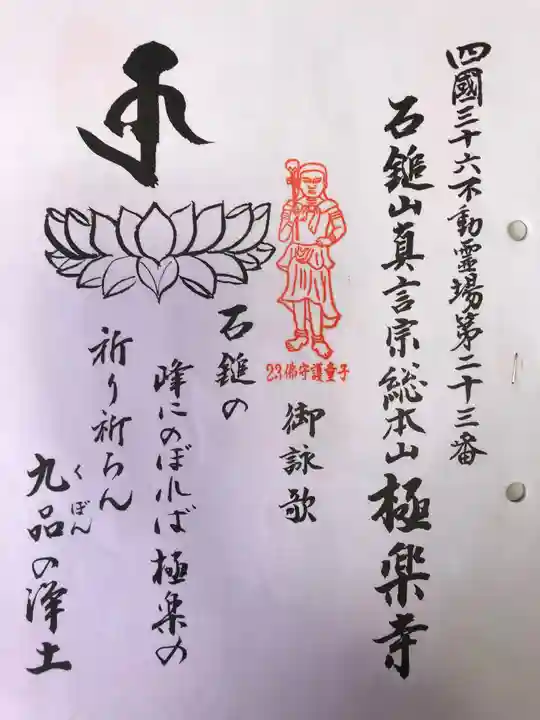 四國三十六不動霊場第二十三番
石鎚山真言宗総本山極楽寺
23佛守護童子
御詠歌
石鎚の
峰にのぼれば極楽の
祈り祈らん
九品の浄土
くぼん